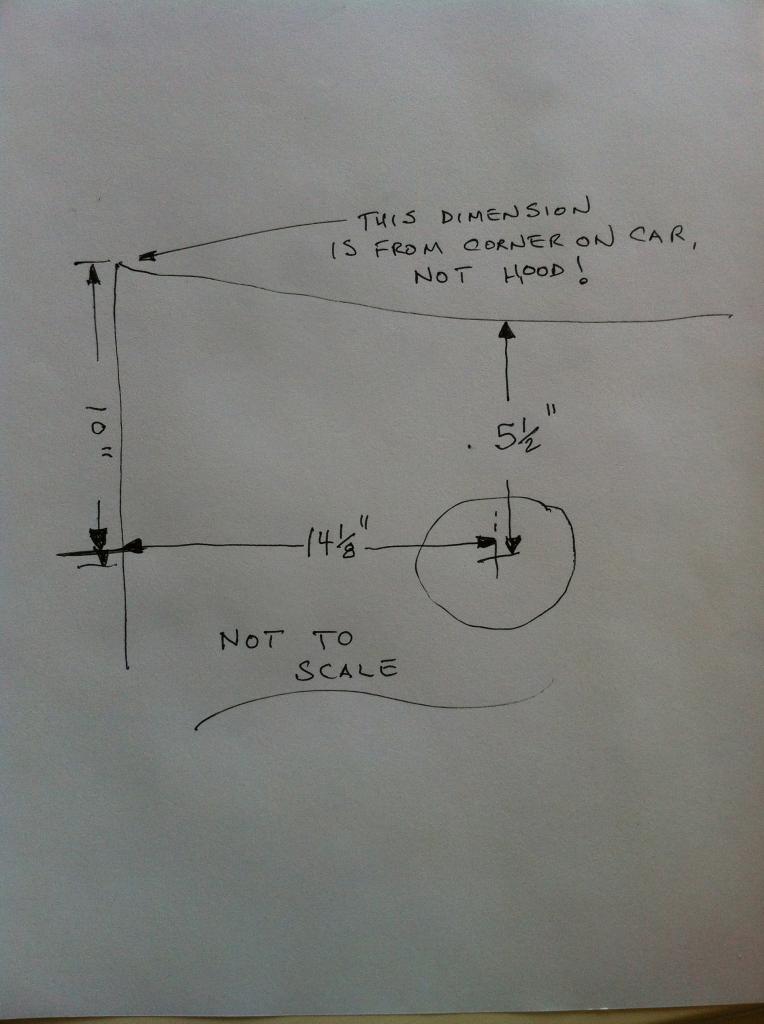 THIS DIMENSION
IS FROM CORNER ON CAR,
NOT HOOD!
10"
5½"
14⅛"
NOT TO
SCALE